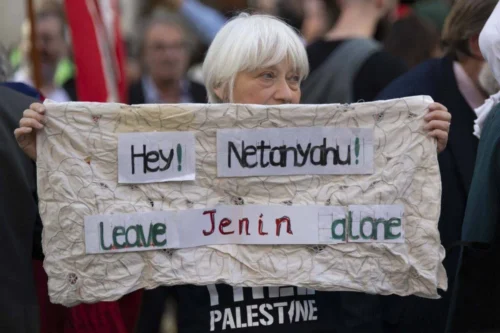 Hey! Netanyahu!
Leave Jenin alone
PALESTINE